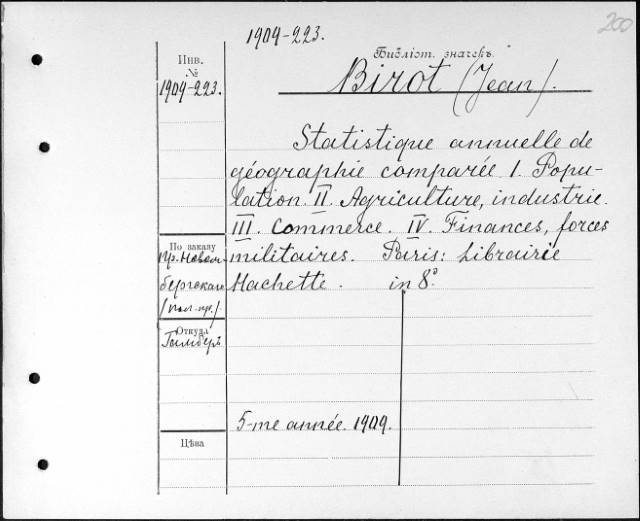 200
1909-223.
Инв.
№
1909-223.
Библіот. значекъ.
Birot (Jean).
Statistique annuelle de
géographie comparée I. Popu-
lation. II. Agriculture, industrie.
III. Commerce. IV. Finances, forces
militaires. Paris: Librairie
Hachette. in 8°
По заказу
бергскаго
Откуда
5-me année. 1909.
Цѣна